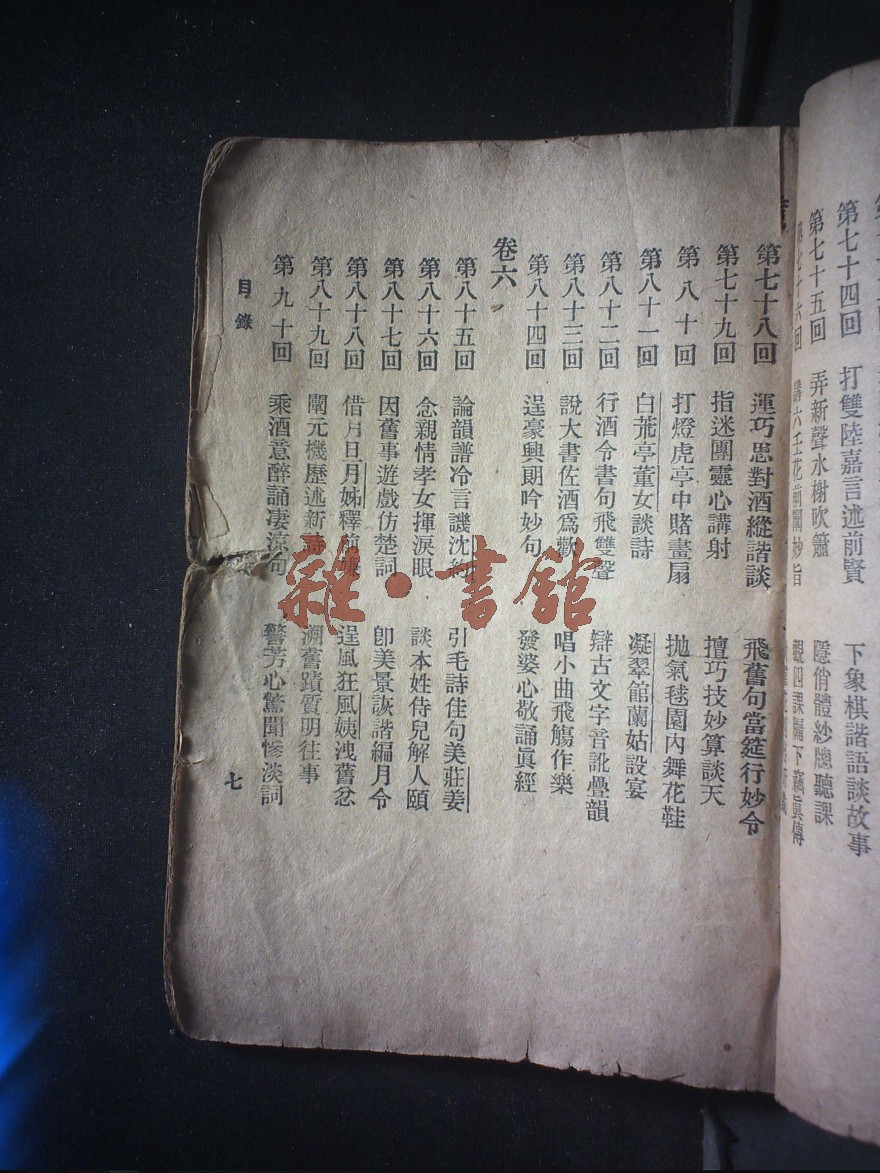 第七十四回　打雙陸嘉言述前賢　下象棋諧語談故事
第七十五回　弄新聲水榭吹簫　隱俏體紗牕聽課
第七十六回　講六壬花前闡妙旨　觀四課牖下竊眞傳
第七十八回　運巧思對酒縱諧談　飛舊句當筵行妙令
第七十九回　指迷團靈心講射　擅巧技妙算談天
第八十回　打燈虎亭中賭畫扇　拋氣毬園內舞花鞋
第八十一回　白荒亭董女談詩　凝翠館蘭姑設宴
第八十二回　行酒令書句飛雙聲　辯古文字音訛疊韻
第八十三回　說大書佐酒爲歡　唱小曲飛觴作樂
第八十四回　逞豪興朗吟妙句　發婆心敬誦眞經
卷六
第八十五回　論韻譜冷言譏沈約　引毛詩佳句美莊姜
第八十六回　念親情孝女揮淚眼　談本姓侍兒解人頤
第八十七回　因舊事遊戲仿楚詞　卽美景詼諧編月令
第八十八回　借月旦月姊釋前嫌　逞風狂風姨洩舊忿
第八十九回　闡元機歷述新詩　溯舊蹟質明往事
第九十回　乘酒意醉誦凄涼句　警芳心驚聞慘淡詞
目錄
七
雜·書館